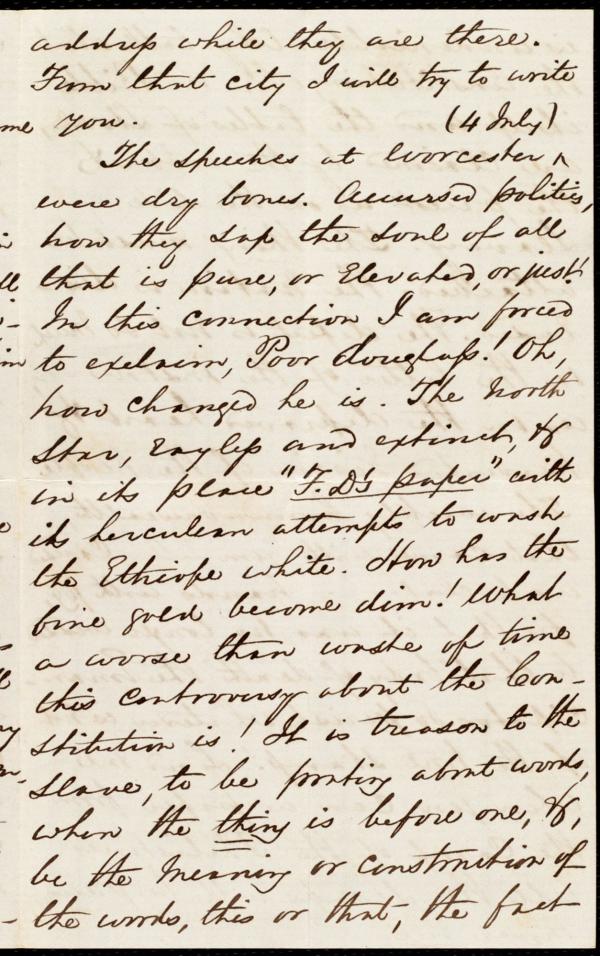 address while they are there.
From that city I will try to write
you. (4 July)
The speeches at Worcester ^
were dry bones. Accursed politics,
how they sap the soul of all
that is pure, or Elevated, or just!
In this connection I am forced
to exclaim, Poor Douglass! Oh,
how changed he is. The North
Star, rayless and extinct, &
in its place "F.D's paper" with
its herculean attempts to wash
the Ethiope white. How has the
fine gold become dim! What
a worse than waste of time
this controversy about the Con-
stitution is! It is treason to the
Slave, to be prating about words,
when the thing is before one, &,
be the meaning or construction of
the words, this or that, the fact